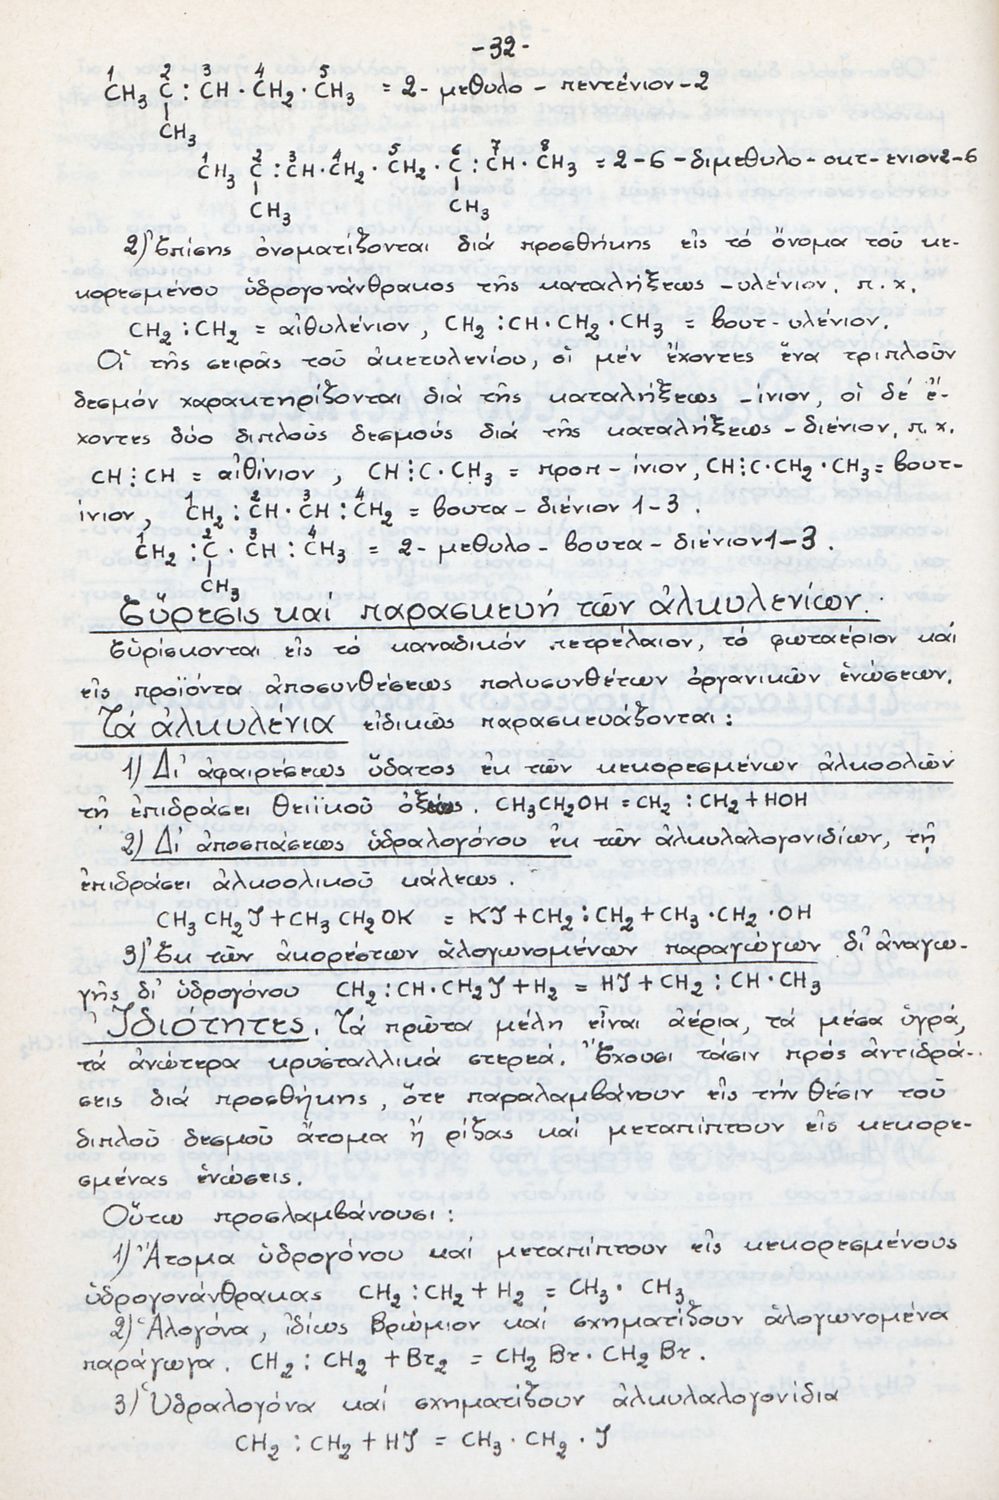 -32-
1 2 3 4 5
CH3 C : CH · CH2 · CH3 = 2- μεθυλο - πεντένιον-2
CH3
1 2 3 4 5 6 7 8
CH3 C : CH · CH2 · CH2 · C : CH · CH3 = 2-6-διμεθυλο-οκτ-ενιον2-6
CH3 CH3
2) Ἐπίσης ὀνοματίζονται διά προσθήκης εἰς τό ὄνομα του κε-
κορεσμένου ὑδρογονάνθρακος τῆς καταλήξεως -υλένιον. π.χ.
CH2 : CH2 = αἰθυλένιον, CH2 : CH · CH2 · CH3 = βουτ-υλένιον.
Οἱ τῆς σειρᾶς τοῦ ἀκετυλενίου, οἱ μέν ἔχοντες ἕνα τριπλοῦν
δεσμόν χαρακτηρίζονται διά τῆς καταλήξεως -ίνιον, οἱ δέ ἔ-
χοντες δύο διπλοῦς δεσμούς διά τῆς καταλήξεως -διένιον. π.χ.
CH⋮CH = αἰθίνιον, CH⋮C · CH3 = προπ-ίνιον, CH⋮C · CH2 · CH3 = βουτ-
ίνιον, 1 2 3 4
CH2 : CH · CH : CH2 = βουτα-διένιον 1-3.
1 2 3 4
CH2 : C · CH : CH3 = 2- μεθυλο - βουτα - διένιον 1-3.
CH3
Εὕρεσις καί παρασκευή τῶν ἀλκυλενίων.
Εὑρίσκονται εἰς τό καναδικόν πετρέλαιον, τό φωταέριον καί
εἰς προϊόντα ἀποσυνθέσεως πολυσυνθέτων ὀργανικῶν ἑνώσεων.
Τά ἀλκυλένια εἰδικῶς παρασκευάζονται:
1) Δι' ἀφαιρέσεως ὕδατος ἐκ τῶν κεκορεσμένων ἀλκοολῶν
τῇ ἐπιδράσει θειϊκοῦ ὀξέως. CH3CH2OH = CH2 : CH2 + HOH
2) Δι' ἀποσπάσεως ὑδραλογόνου ἐκ τῶν ἀλκυλαλογονιδίων, τῇ
ἐπιδράσει ἀλκοολικοῦ κάλεως.
CH3 CH2J + CH3 CH2OK = KJ + CH2 : CH2 + CH3 · CH2 · OH
3) Ἐκ τῶν ἀκορέστων ἁλογωνομένων παραγώγων δι' ἀναγω-
γῆς δι' ὑδρογόνου CH2 : CH · CH2J + H2 = HJ + CH2 : CH · CH3
Ἰδιότητες. Τά πρῶτα μέλη εἶναι ἀέρια, τά μέσα ὑγρά,
τά ἀνώτερα κρυσταλλικά στερεά. Ἔχουσι τάσιν πρός ἀντιδρά-
σεις διά προσθήκης, ὅτε παραλαμβάνουν εἰς τήν θέσιν τοῦ
διπλοῦ δεσμοῦ ἄτομα ἤ ρίζας καί μεταπίπτουν εἰς κεκορε-
σμένας ἑνώσεις.
Οὕτω προσλαμβάνουσι:
1) Ἄτομα ὑδρογόνου καί μεταπίπτουν εἰς κεκορεσμένους
ὑδρογονάνθρακας CH2 : CH2 + H2 = CH3 · CH3
2) Ἁλογόνα, ἰδίως βρώμιον καί σχηματίζουν ἁλογωνομένα
παράγωγα. CH2 : CH2 + Br2 = CH2 Br · CH2 Br.
3) Ὑδραλογόνα καί σχηματίζουν ἀλκυλαλογονίδια
CH2 : CH2 + HJ = CH3 · CH2 · J